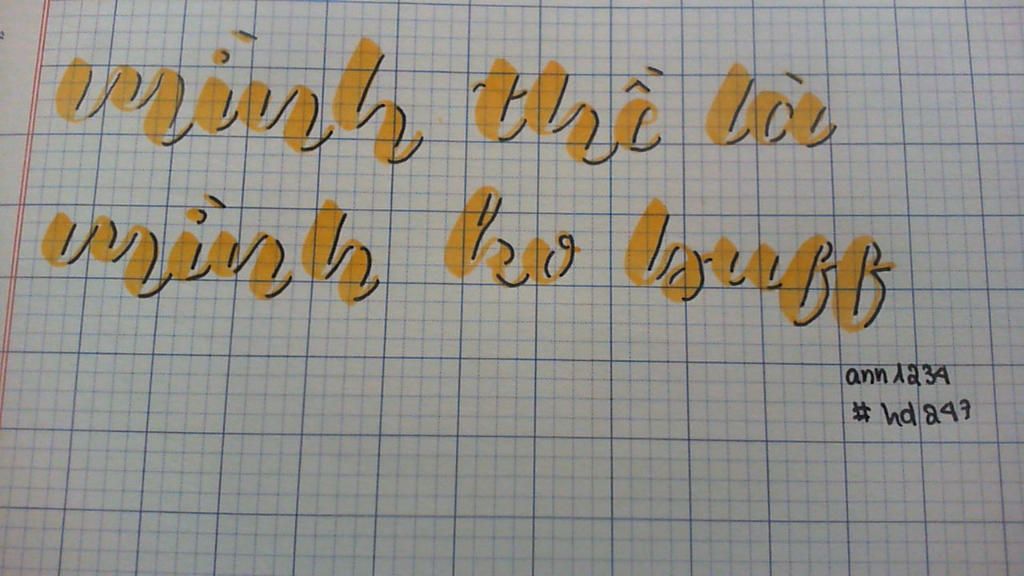 mình thề là
mình ko buff
ann1234
#hd247